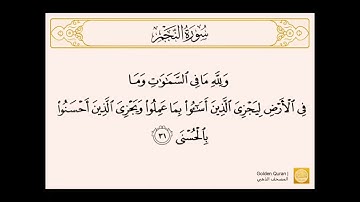 سُورَةُ النَّجْمِ
وَلِلَّهِ مَا فِي ٱلسَّمَـٰوَٰتِ وَمَا
فِي ٱلْأَرْضِ لِيَجْزِيَ ٱلَّذِينَ أَسَـٰٓـُٔوا۟ بِمَا عَمِلُوا۟ وَيَجْزِيَ ٱلَّذِينَ أَحْسَنُوا۟
بِٱلْحُسْنَى ٣١
Golden Quran |
المصحف الذهبي